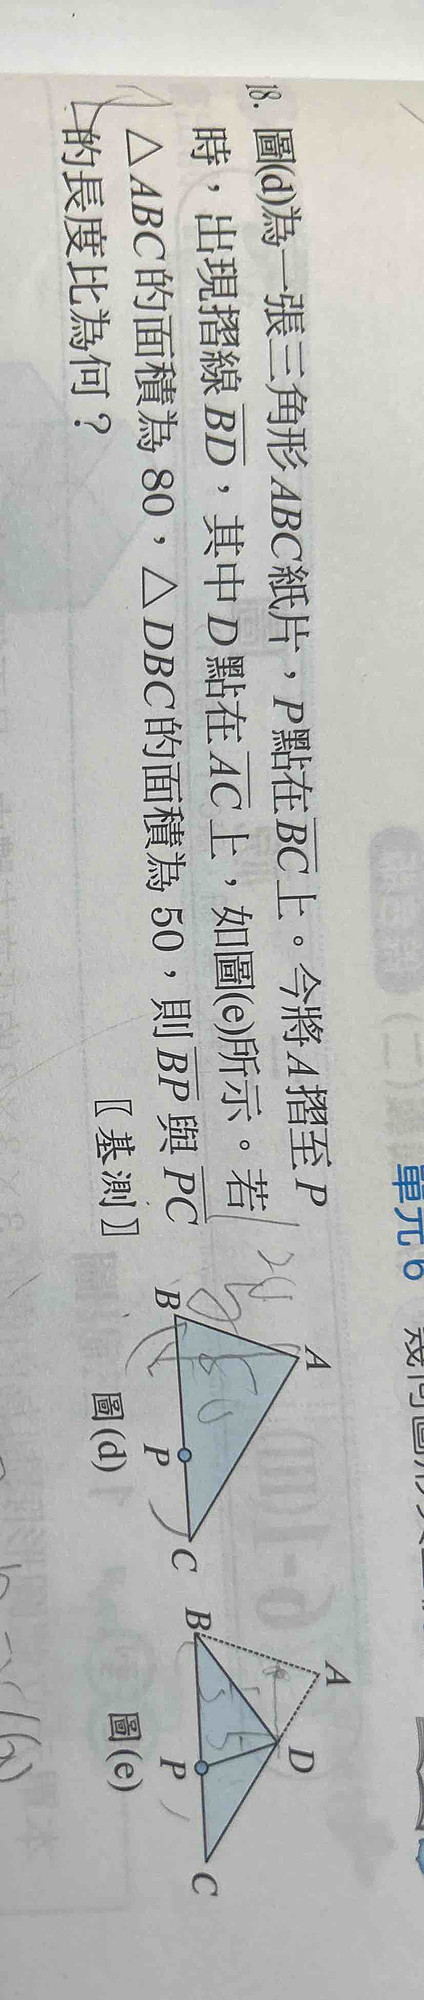 單元6
18. 圖(d)為一張三角形ABC紙片，P點在BC上。今將A摺至P
時，出現摺線BD，其中D點在AC上，如圖(e)所示。若
△ABC的面積為80，△DBC的面積為50，則BP與PC
的長度比為何？
〖基測〗
A
B
P
C
圖(d)
A
B
D
P
C
圖(e)